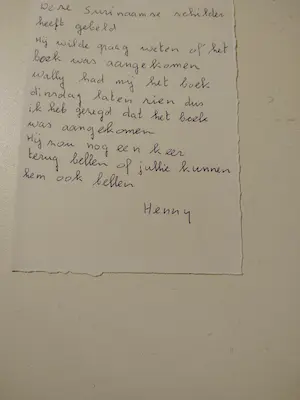 Deze Surinaamse schilder
heeft gebeld
Hij wilde graag weten of het
boek was aangekomen
Wally had mij het boek
dinsdag laten zien dus
ik heb gezegd dat het boek
was aangekomen
Hij zou nog een keer
terug bellen of jullie kunnen
hem ook bellen
Henny